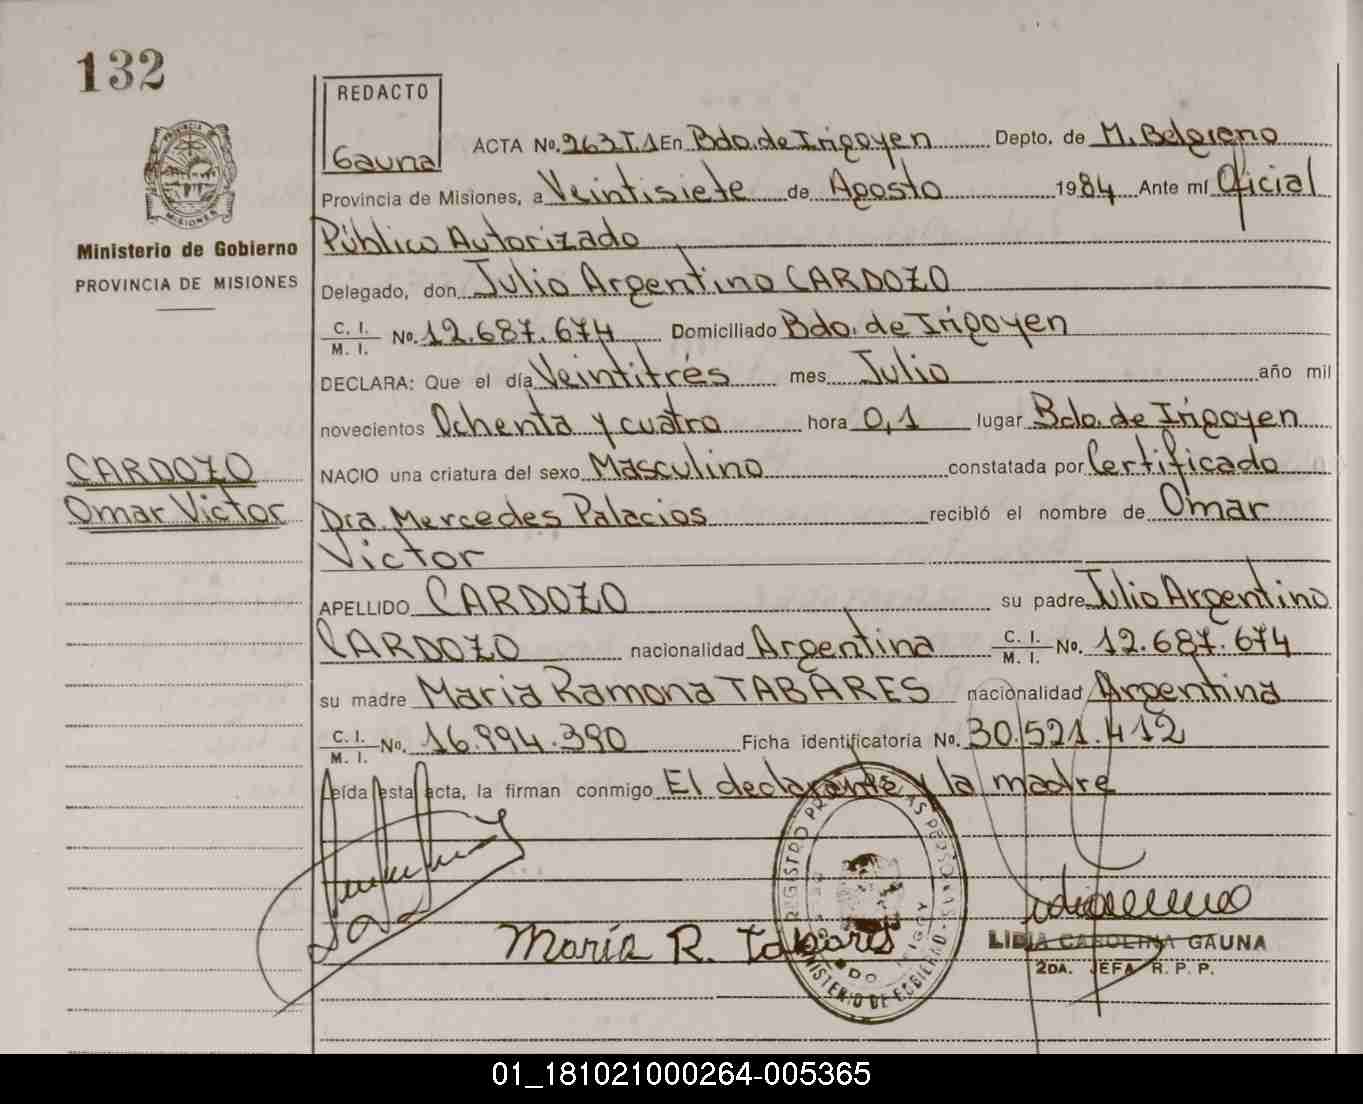 132
REDACTO
Gauna
ACTA No. 263 T.1 En Bdo. de Irigoyen Depto. de M. Belgrano
Provincia de Misiones, a Veintisiete de Agosto 1984 Ante mí Oficial
Público Autorizado
Ministerio de Gobierno
PROVINCIA DE MISIONES
Delegado, don Julio Argentino CARDOZO
C. I.
M. I. No. 12.687.674 Domiciliado Bdo. de Irigoyen
DECLARA: Que el día Veintitrés mes Julio año mil
novecientos Ochenta y cuatro hora 0,1 lugar Bdo. de Irigoyen
CARDOZO
Omar Victor
NACIO una criatura del sexo Masculino constatada por Certificado
Dra. Mercedes Palacios recibió el nombre de Omar
Victor
APELLIDO CARDOZO su padre Julio Argentino
CARDOZO nacionalidad Argentina C. I. M. I. No. 12.687.674
su madre Maria Ramona TABARES nacionalidad Argentina
C. I. M. I. No. 16.994.390 Ficha identificatoria No. 30.521.412
Leída esta acta, la firman conmigo El declarante y la madre
María R. Tabares
LIDIA CAROLINA GAUNA
2DA. JEFA R. P. P.
MINISTERIO DE GOBIERNO
01_181021000264-005365